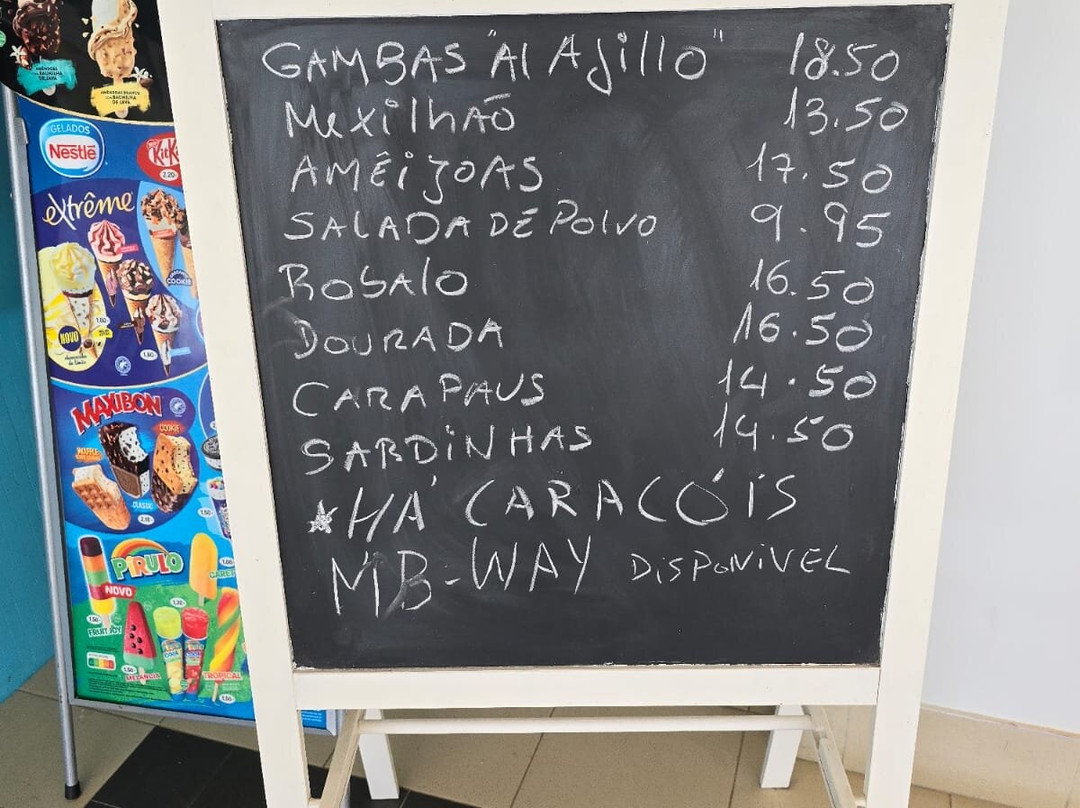 GAMBAS "Al Ajillo" 18.50
Mexilhão 13.50
AMÊijOAS 17.50
SALADA DE Polvo 9.95
Robalo 16.50
DOURADA 16.50
CARAPAUS 14.50
SARDiNHAS 14.50
*HÁ CARACÓiS
MB-WAY DiSPoNiVEL
GELADOS
Nestlé
KitK
2.20
extrême
COOKIE
NOVO
1.80
1.80
MAXIBON
COOKIE
WAFFLE
CLASSIC
2.20
1.50
PIRULO
NOVO
1.00
1.50
FRUIT JOY
1.20
1.50
MELANCIA
TROPICAL
1.50